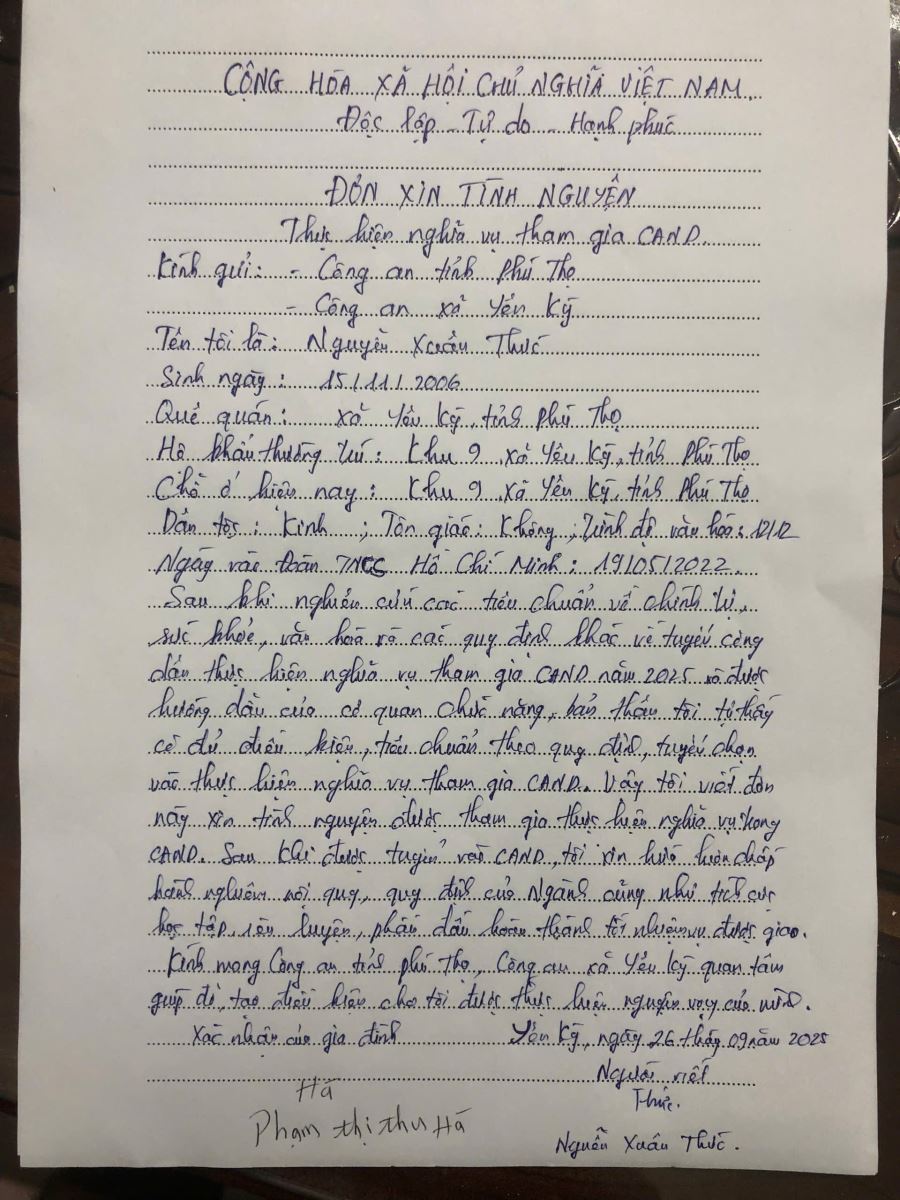 CỘNG HÒA XÃ HỘI CHỦ NGHĨA VIỆT NAM
Độc lập - Tự do - Hạnh phúc
ĐƠN XIN TÌNH NGUYỆN
Thực hiện nghĩa vụ tham gia CAND
Kính gửi: - Công an tỉnh Phú Thọ
- Công an xã Yên Kỳ
Tên tôi là: Nguyễn Xuân Thức
Sinh ngày: 15/11/2006
Quê quán: xã Yên Kỳ, tỉnh Phú Thọ
Hộ khẩu thường trú: Khu 9 xã Yên Kỳ, tỉnh Phú Thọ
Chỗ ở hiện nay: Khu 9 xã Yên Kỳ, tỉnh Phú Thọ
Dân tộc: Kinh; Tôn giáo: Không; Trình độ văn hóa: 12/12
Ngày vào Đoàn TNCS Hồ Chí Minh: 19/05/2022.
Sau khi nghiên cứu các tiêu chuẩn về chính trị,
sức khỏe, văn hoá và các quy định khác về tuyển công
dân thực hiện nghĩa vụ tham gia CAND năm 2025 và được
hướng dẫn của cơ quan chức năng, bản thân tôi tự thấy
có đủ điều kiện, tiêu chuẩn theo quy định, tuyển chọn
vào thực hiện nghĩa vụ tham gia CAND. Vậy tôi viết đơn
này xin tình nguyện được tham gia thực hiện nghĩa vụ trong
CAND. Sau khi được tuyển vào CAND, tôi xin hứa luôn chấp
hành nghiêm nội quy, quy định của Ngành cũng như tích cực
học tập, rèn luyện, phấn đấu hoàn thành tốt nhiệm vụ được giao.
Kính mong Công an tỉnh Phú Thọ, Công an xã Yên Kỳ quan tâm
giúp đỡ, tạo điều kiện cho tôi được thực hiện nguyện vọng của mình.
Xác nhận của gia đình Yên Kỳ, ngày 26 tháng 09 năm 2025
Người viết
Hà Thức.
Phạm Thị Thu Hà
Nguễn Xuân Thức.